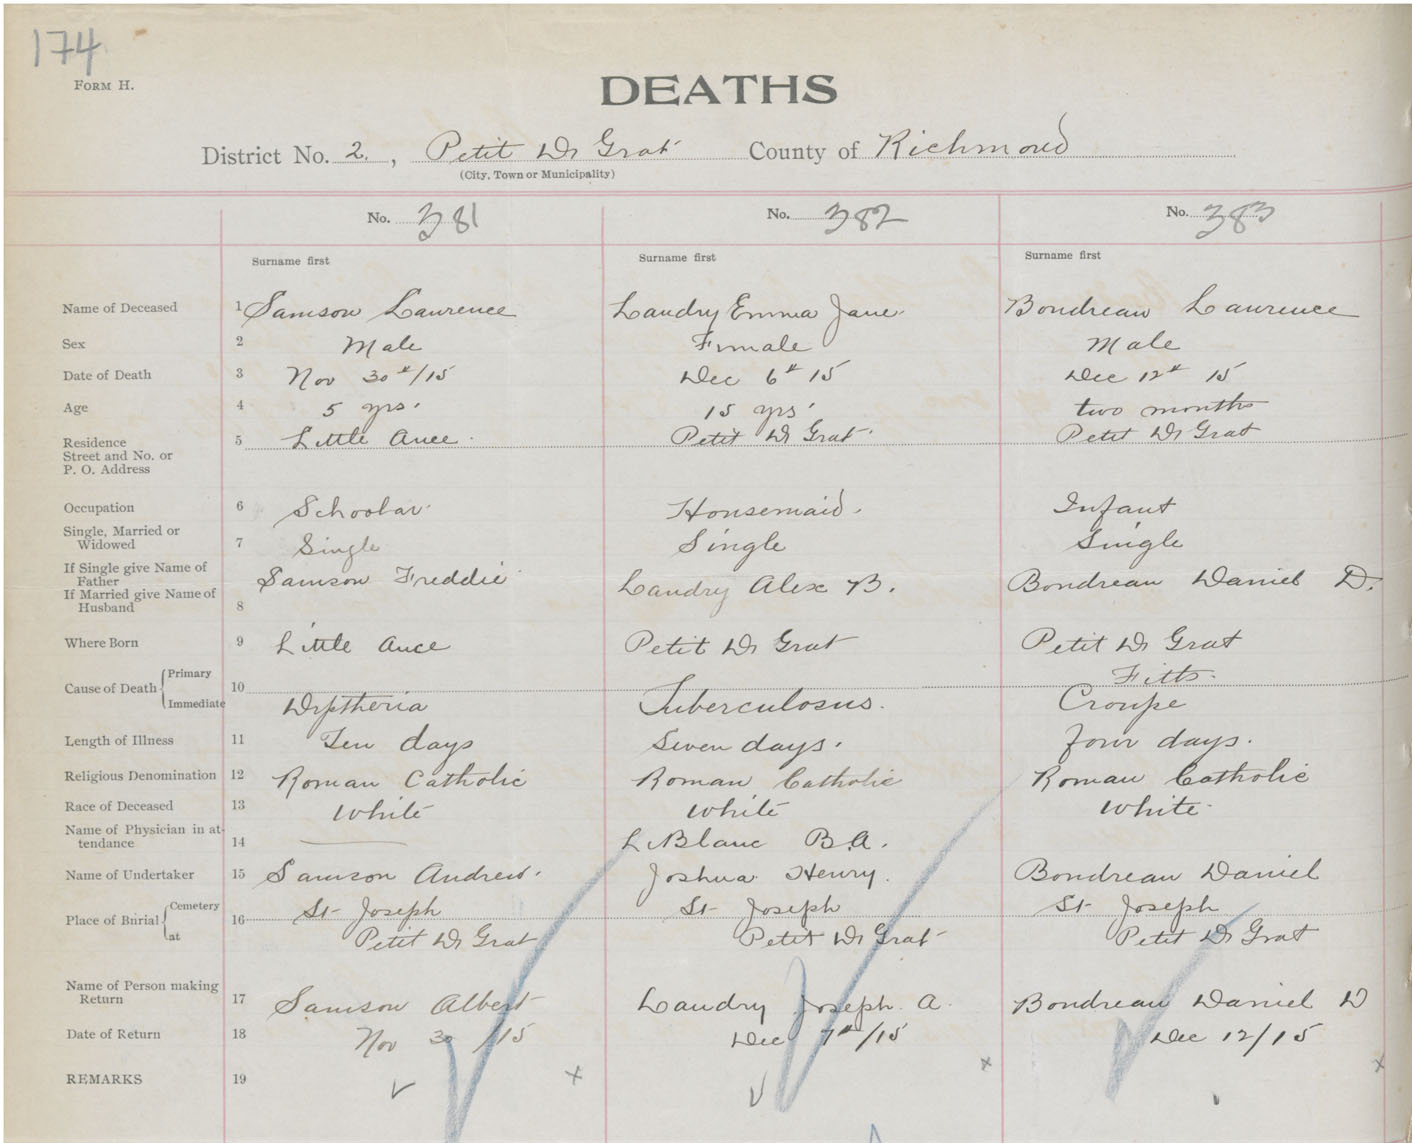 174
FORM H.
DEATHS
District No. 2, Petit De Grat County of Richmond
(City, Town or Municipality)
No. 381 No. 382 No. 383
Surname first Surname first Surname first
Name of Deceased 1 Samson Lawrence Landry Emma Jane. Boudreau Lawrence
Sex 2 Male Female Male
Date of Death 3 Nov 30th/15 Dec 6th 15 Dec 12th 15
Age 4 5 yrs. 15 yrs. two months
Residence 5 Little Ance. Petit De Grat. Petit De Grat
Street and No. or
P. O. Address
Occupation 6 Schoolar. Housemaid. Infant
Single, Married or
Widowed 7 Single Single Single
If Single give Name of
Father Samson Freddie Landry Alex B. Boudreau Daniel D.
If Married give Name of
Husband 8
Where Born 9 Little Ance Petit De Grat Petit De Grat
Cause of Death Primary 10 Fitts.
Immediate Diptheria Tuberculosus. Croupe
Length of Illness 11 Ten days Seven days. four days.
Religious Denomination 12 Roman Catholic Roman Catholic Roman Catholic
Race of Deceased 13 White White White
Name of Physician in at-
tendance 14 LeBlanc B.A.
Name of Undertaker 15 Samson Andrew. Joshua Henry. Boudreau Daniel
Place of Burial Cemetery 16 St Joseph St Joseph St Joseph
at Petit De Grat Petit De Grat Petit De Grat
Name of Person making
Return 17 Samson Albert Landry Joseph A. Boudreau Daniel D
Date of Return 18 Nov 30/15 Dec 7th/15 Dec 12/15
REMARKS 19 x x x